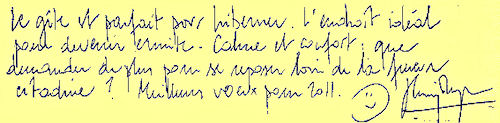 Le gîte est parfait pour hiberner. L'endroit idéal
pour devenir ermite. Calme et confort, que
demander de plus pour se reposer loin de la fureur
citadine ? Meilleurs vœux pour 2011.